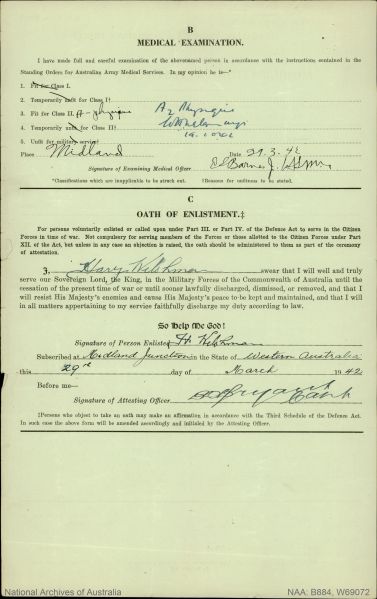 B
MEDICAL EXAMINATION.
I have made full and careful examination of the abovenamed person in accordance with the instructions contained in the
Standing Orders for Australian Army Medical Services. In my opinion he is—*
1. Fit for Class I.
2. Temporarily unfit for Class I†
3. Fit for Class II. A - physique
4. Temporarily unfit for Class II†
5. Unfit for military service†
A2 Physique
Place Midland Date 29.3.42
Signature of Examining Medical Officer
*Classifications which are inapplicable to be struck out. †Reasons for unfitness to be stated.
C
OATH OF ENLISTMENT.‡
For persons voluntarily enlisted or called upon under Part III. or Part IV. of the Defence Act to serve in the Citizen
Forces in time of war. Not compulsory for serving members of the Forces or those allotted to the Citizen Forces under Part
XII. of the Act, but unless in any case an objection is raised, the oath should be administered to them as part of the ceremony
of attestation.
I, Harry swear that I will well and truly
serve our Sovereign Lord, the King, in the Military Forces of the Commonwealth of Australia until the
cessation of the present time of war or until sooner lawfully discharged, dismissed, or removed, and that I
will resist His Majesty's enemies and cause His Majesty's peace to be kept and maintained, and that I will
in all matters appertaining to my service faithfully discharge my duty according to law.
So Help Me God!
Signature of Person Enlisted H
Subscribed at Midland Junction in the State of Western Australia
this 29th day of March 1942
Before me—
Signature of Attesting Officer Capt
‡Persons who object to take an oath may make an affirmation in accordance with the Third Schedule of the Defence Act.
In such case the above form will be amended accordingly and initialed by the Attesting Officer.
National Archives of Australia NAA: B884, W69072